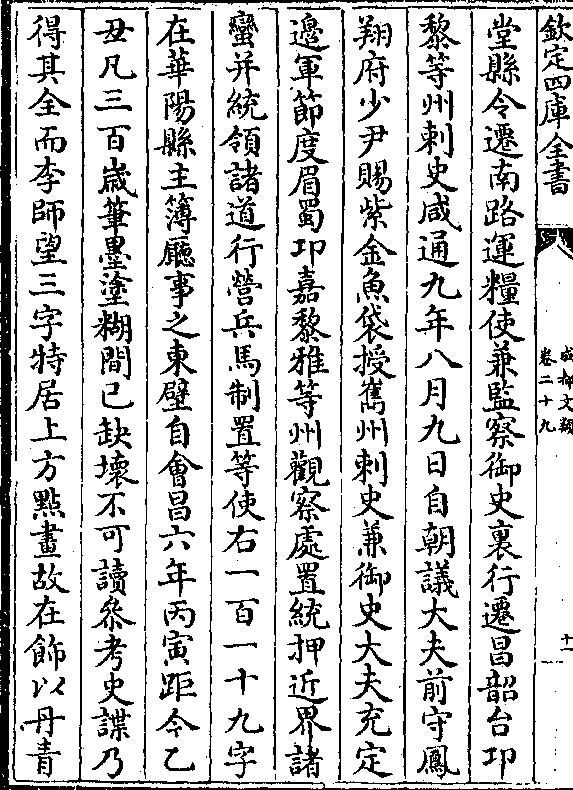 欽定四庫全書
成都文類
卷二十九
十一
堂縣令遷南路運糧使兼監察御史裏行遷昌韶台邛
黎等州刺史咸通九年八月九日自朝議大夫前守鳳
翔府少尹賜紫金魚袋授巂州刺史兼御史大夫充定
邉軍節度眉蜀邛嘉黎雅等州觀察處置統押近界諸
蠻并統領諸道行營兵馬制置等使右一百一十九字
在華陽縣主簿廳事之東壁自會昌六年丙寅距今乙
丑凡三百歲筆墨塗糊間已缺壊不可讀叅考史諜乃
得其全而李師望三字特居上方點畫故在飾以丹青